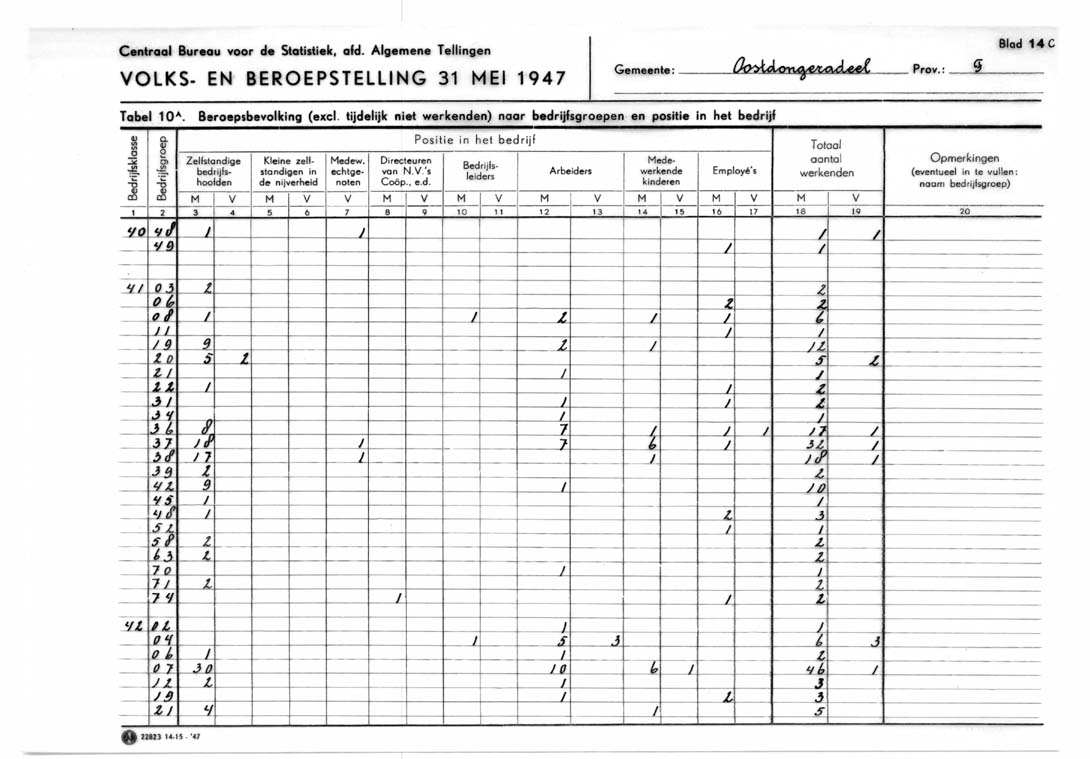 Centraal Bureau voor de Statistiek, afd. Algemene Tellingen
Blad 14 C
VOLKS- EN BEROEPSTELLING 31 MEI 1947
Gemeente: Oostdongeradeel Prov.: F
Tabel 10A. Beroepsbevolking (excl. tijdelijk niet werkenden) naar bedrijfsgroepen en positie in het bedrijf
Bedrijfsklasse
Bedrijfsgroep
Positie in het bedrijf
Zelfstandige bedrijfs-hoofden
Kleine zelf-standigen in de nijverheid
Medew. echtge-noten
Directeuren van N.V.'s Coöp., e.d.
Bedrijfs-leiders
Arbeiders
Mede-werkende kinderen
Employé's
Totaal aantal werkenden
Opmerkingen (eventueel in te vullen: naam bedrijfsgroep)
M V M V V M V M V M V M V M V M V
1 2 3 4 5 6 7 8 9 10 11 12 13 14 15 16 17 18 19 20
40 48 1 1 1 1
49 1 1
41 03 2 2
06 2 2
08 1 1 2 1 1 6
11 1 1
19 9 2 1 12
20 5 2 5 2
21 1 1
22 1 1 2
31 1 1 2
34 1 1
36 8 7 1 1 1 17 1
37 18 1 7 6 1 32 1
38 17 1 1 18 1
39 2 2
42 9 1 10
45 1 1
48 1 2 3
52 1 1
58 2 2
63 2 2
70 1 1
71 2 2
74 1 1 2
42 02 1 1
04 1 5 3 6 3
06 1 1 2
07 30 10 6 1 46 1
12 2 1 3
19 1 2 3
21 4 1 5
22823 14-15 - '47